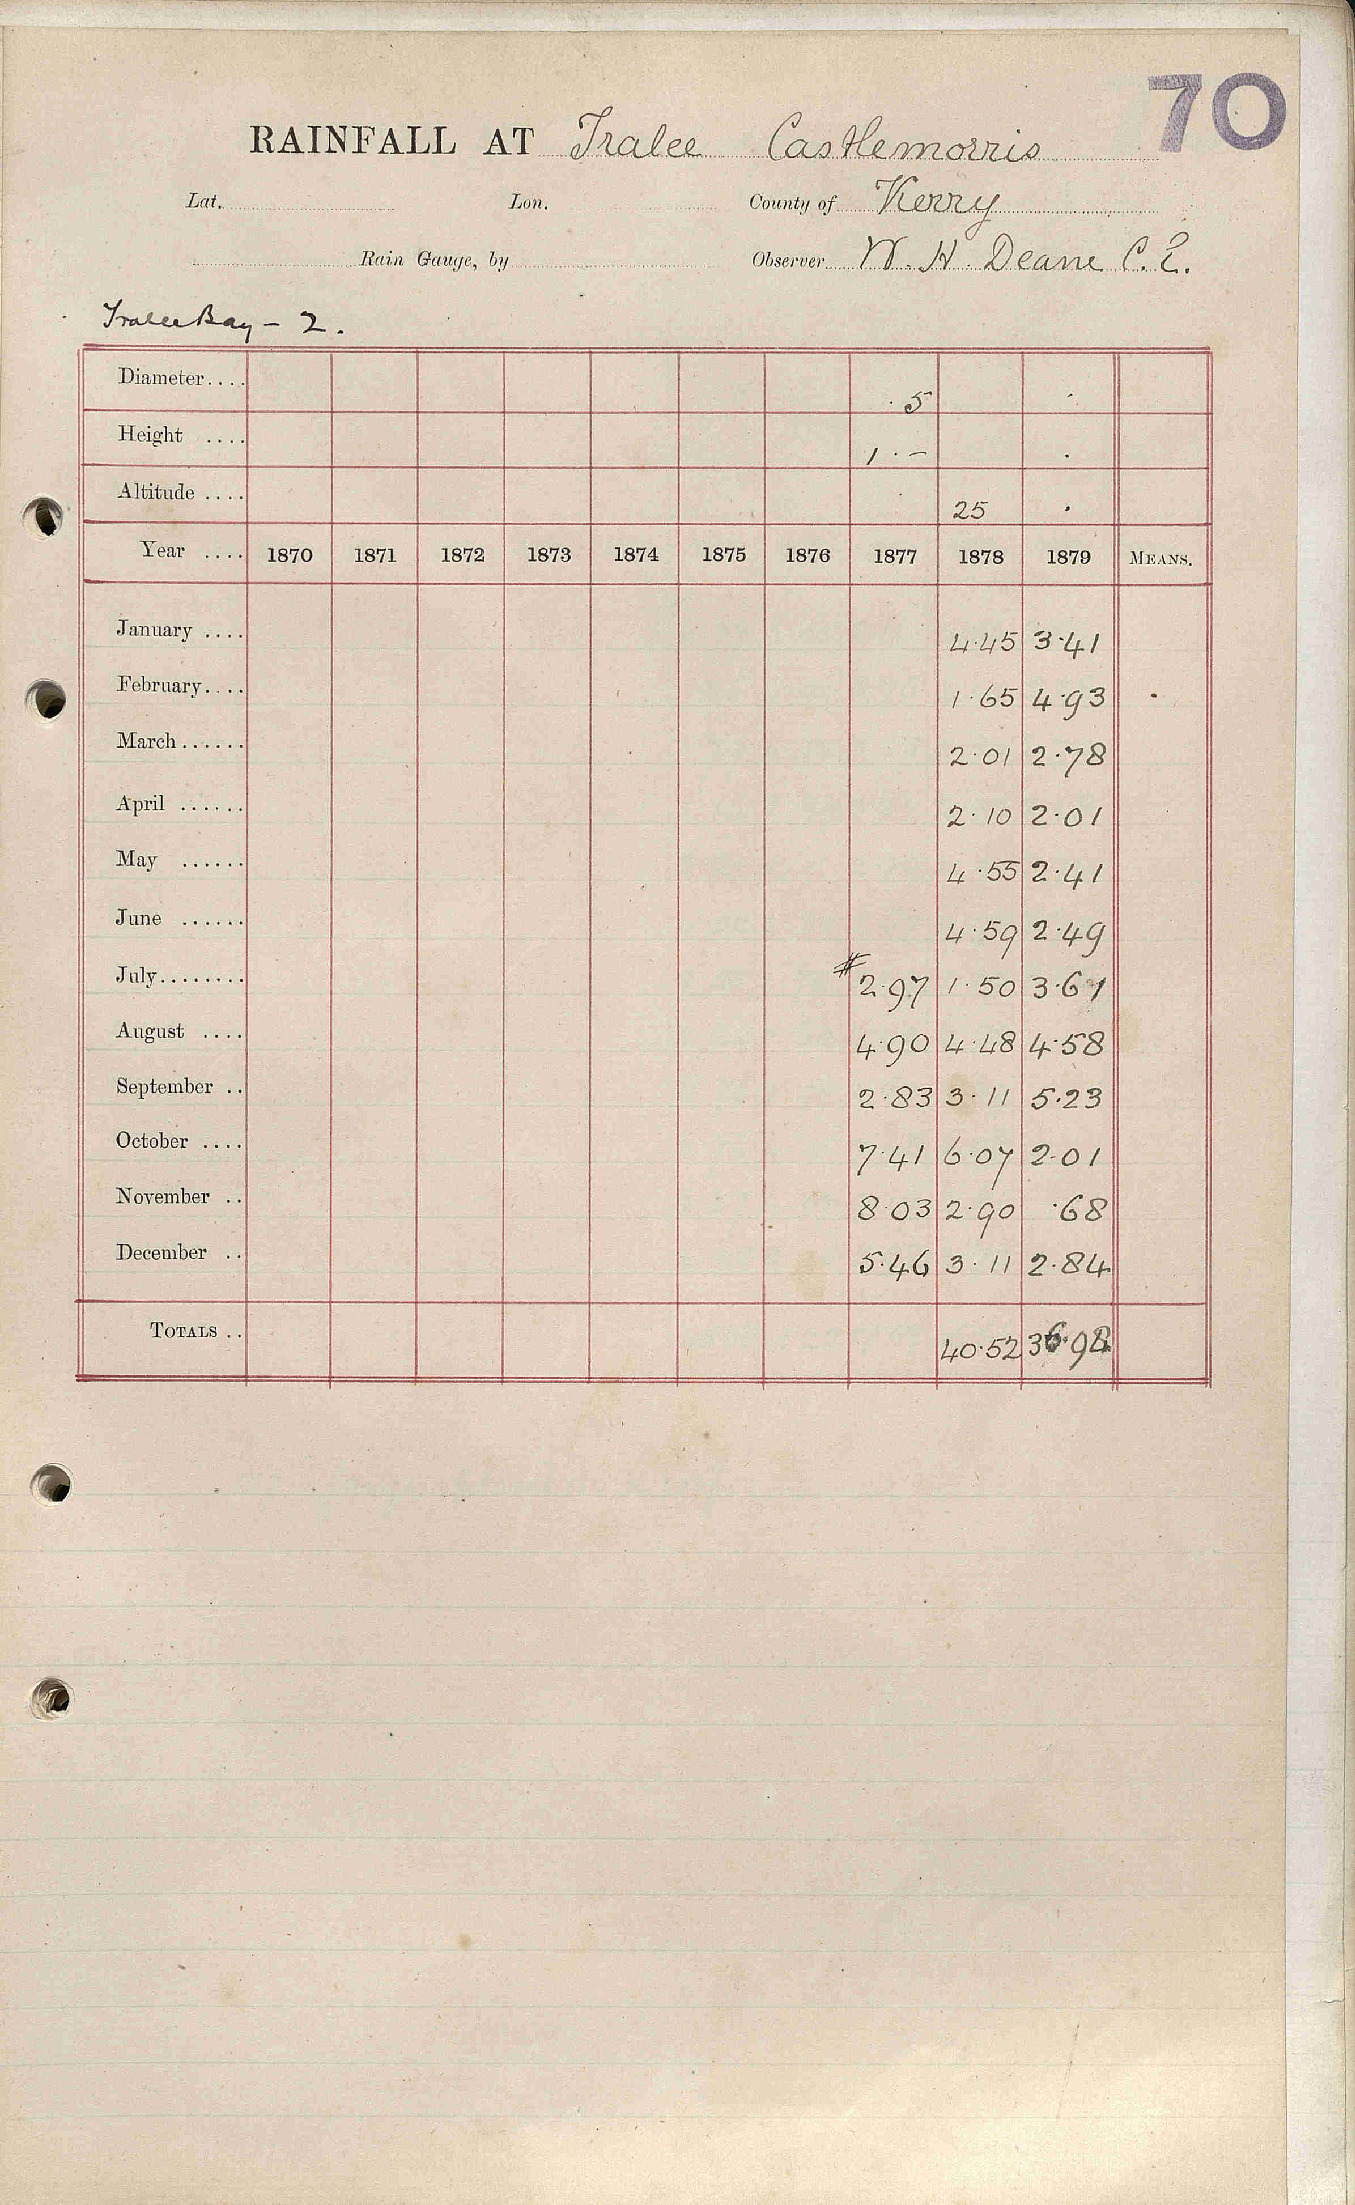 70
RAINFALL AT Tralee Castlemorris
Lat. Lon. County of Kerry
Rain Gauge, by Observer W. H. Deane C.E.
Tralee Bay - 2.
Diameter.... 5
Height .... 1 · –
Altitude .... 25
Year .... 1870 1871 1872 1873 1874 1875 1876 1877 1878 1879 MEANS.
January .... 4·45 3·41
February.... 1·65 4·93
March...... 2·01 2·78
April ...... 2·10 2·01
May ...... 4·55 2·41
June ...... 4·59 2·49
July........ #2·97 1·50 3·61
August .... 4·90 4·48 4·58
September .. 2·83 3·11 5·23
October .... 7·41 6·07 2·01
November .. 8·03 2·90 ·68
December .. 5·46 3·11 2·84
TOTALS .. 40·52 36·98